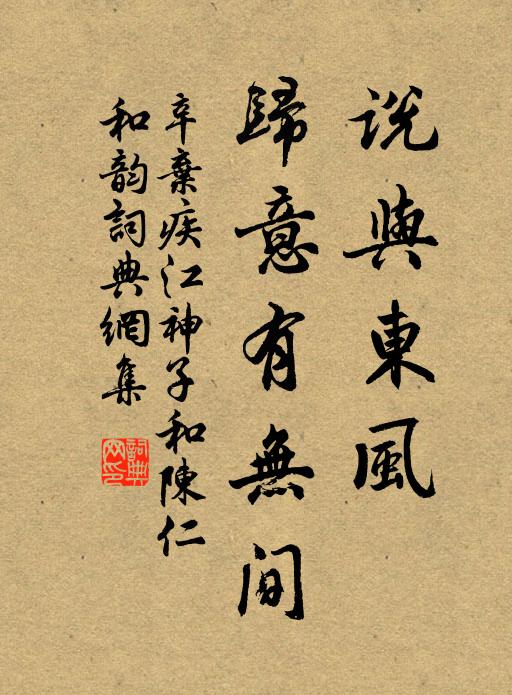 說與東風
歸意有無間
辛棄疾江神子和陳仁
和韵詞典網集
詞典
网印